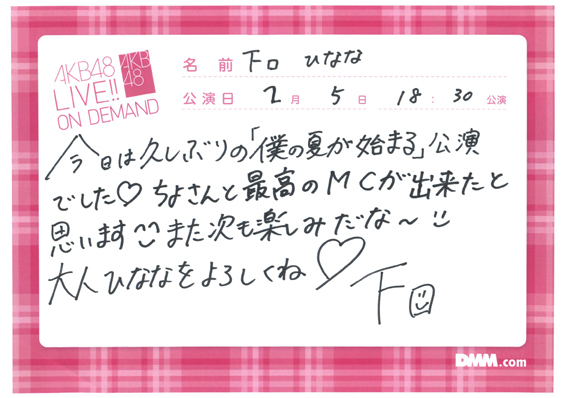 AKB48
LIVE!!
ON DEMAND
AKB
48
名前 下口 ひなな
公演日 2月 5日 18:30 公演
今日は久しぶりの「僕の夏が始まる」公演
でした♡ ちよさんと最高のMCが出来たと
思います また次も楽しみだな〜
大人ひななをよろしくね♡
下口
DMM.com